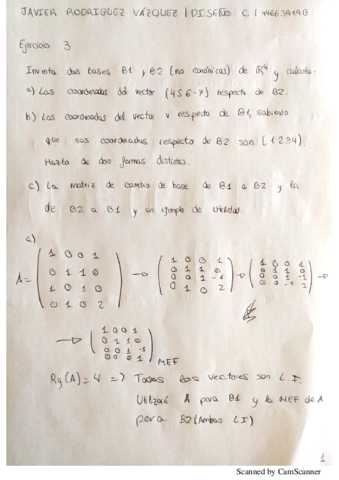 JAVIER RODRIGUEZ VÁZQUEZ | DISEÑO C |
Ejercicio 3
Inventa dos bases B1 y B2 (no canónicas) de ℝ⁴ y calcula:
a) Las coordenadas del vector (4 5 6 -7) respecto de B2.
b) Las coordenadas del vector v respecto de B1, sabiendo
que sus coordenadas respecto de B2 son (1 2 3 4).
Hazlo de dos formas distintas.
c) La matriz de cambio de base de B1 a B2 y la
de B2 a B1 y un ejemplo de utilidad.
a)
1 0 0 1 1 0 0 1 1 0 0 1
A= 0 1 1 0 → 0 1 1 0 → 0 1 1 0 →
1 0 1 0 0 0 1 -1 0 0 1 -1
0 1 0 2 0 1 0 2 0 0 -1 2
→ 1 0 0 1
0 1 1 0
0 0 1 -1
0 0 0 1 MEF
Rg(A)=4 => Todos los vectores son L.I.
Utilizaré A para B1 y la MEF de A
para B2 (Ambas LI)
1
Scanned by CamScanner